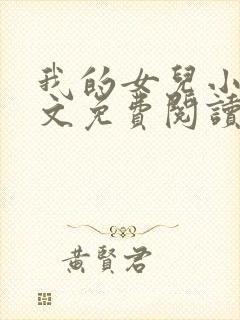 我的女兒小
文免費閱讀
黃賢君